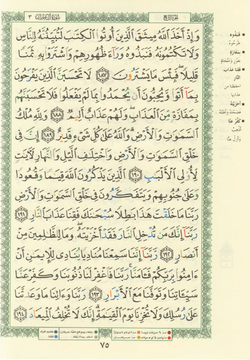 الجزء الرابع
سورة آل عمران ٣
وَإِذۡ أَخَذَ ٱللَّهُ مِيثَٰقَ ٱلَّذِينَ أُوتُواْ ٱلۡكِتَٰبَ لَتُبَيِّنُنَّهُۥ لِلنَّاسِ
وَلَا تَكۡتُمُونَهُۥ فَنَبَذُوهُ وَرَآءَ ظُهُورِهِمۡ وَٱشۡتَرَوۡاْ بِهِۦ ثَمَنٗا
قَلِيلٗاۖ فَبِئۡسَ مَا يَشۡتَرُونَ ١٨٧ لَا تَحۡسَبَنَّ ٱلَّذِينَ يَفۡرَحُونَ
بِمَآ أَتَواْ وَّيُحِبُّونَ أَن يُحۡمَدُواْ بِمَا لَمۡ يَفۡعَلُواْ فَلَا تَحۡسَبَنَّهُم
بِمَفَازَةٖ مِّنَ ٱلۡعَذَابِۖ وَلَهُمۡ عَذَابٌ أَلِيمٞ ١٨٨ وَلِلَّهِ مُلۡكُ
ٱلسَّمَٰوَٰتِ وَٱلۡأَرۡضِۗ وَٱللَّهُ عَلَىٰ كُلِّ شَيۡءٖ قَدِيرٌ ١٨٩ إِنَّ فِي
خَلۡقِ ٱلسَّمَٰوَٰتِ وَٱلۡأَرۡضِ وَٱخۡتِلَٰفِ ٱلَّيۡلِ وَٱلنَّهَارِ لَأٓيَٰتٖ
لِّأُوْلِي ٱلۡأَلۡبَٰبِ ١٩٠ ٱلَّذِينَ يَذۡكُرُونَ ٱللَّهَ قِيَٰمٗا وَقُعُودٗا
وَعَلَىٰ جُنُوبِهِمۡ وَيَتَفَكَّرُونَ فِي خَلۡقِ ٱلسَّمَٰوَٰتِ وَٱلۡأَرۡضِ
رَبَّنَا مَا خَلَقۡتَ هَٰذَا بَٰطِلٗا سُبۡحَٰنَكَ فَقِنَا عَذَابَ ٱلنَّارِ ١٩١
رَبَّنَآ إِنَّكَ مَن تُدۡخِلِ ٱلنَّارَ فَقَدۡ أَخۡزَيۡتَهُۥۖ وَمَا لِلظَّٰلِمِينَ مِنۡ
أَنصَارٖ ١٩٢ رَّبَّنَآ إِنَّنَا سَمِعۡنَا مُنَادِيٗا يُنَادِي لِلۡإِيمَٰنِ أَنۡ
ءَامِنُواْ بِرَبِّكُمۡ فَـَٔامَنَّاۚ رَبَّنَا فَٱغۡفِرۡ لَنَا ذُنُوبَنَا وَكَفِّرۡ عَنَّا
سَيِّـَٔاتِنَا وَتَوَفَّنَا مَعَ ٱلۡأَبۡرَارِ ١٩٣ رَبَّنَا وَءَاتِنَا مَا وَعَدتَّنَا
عَلَىٰ رُسُلِكَ وَلَا تُخۡزِنَا يَوۡمَ ٱلۡقِيَٰمَةِۖ إِنَّكَ لَا تُخۡلِفُ ٱلۡمِيعَادَ ١٩٤
٧٥